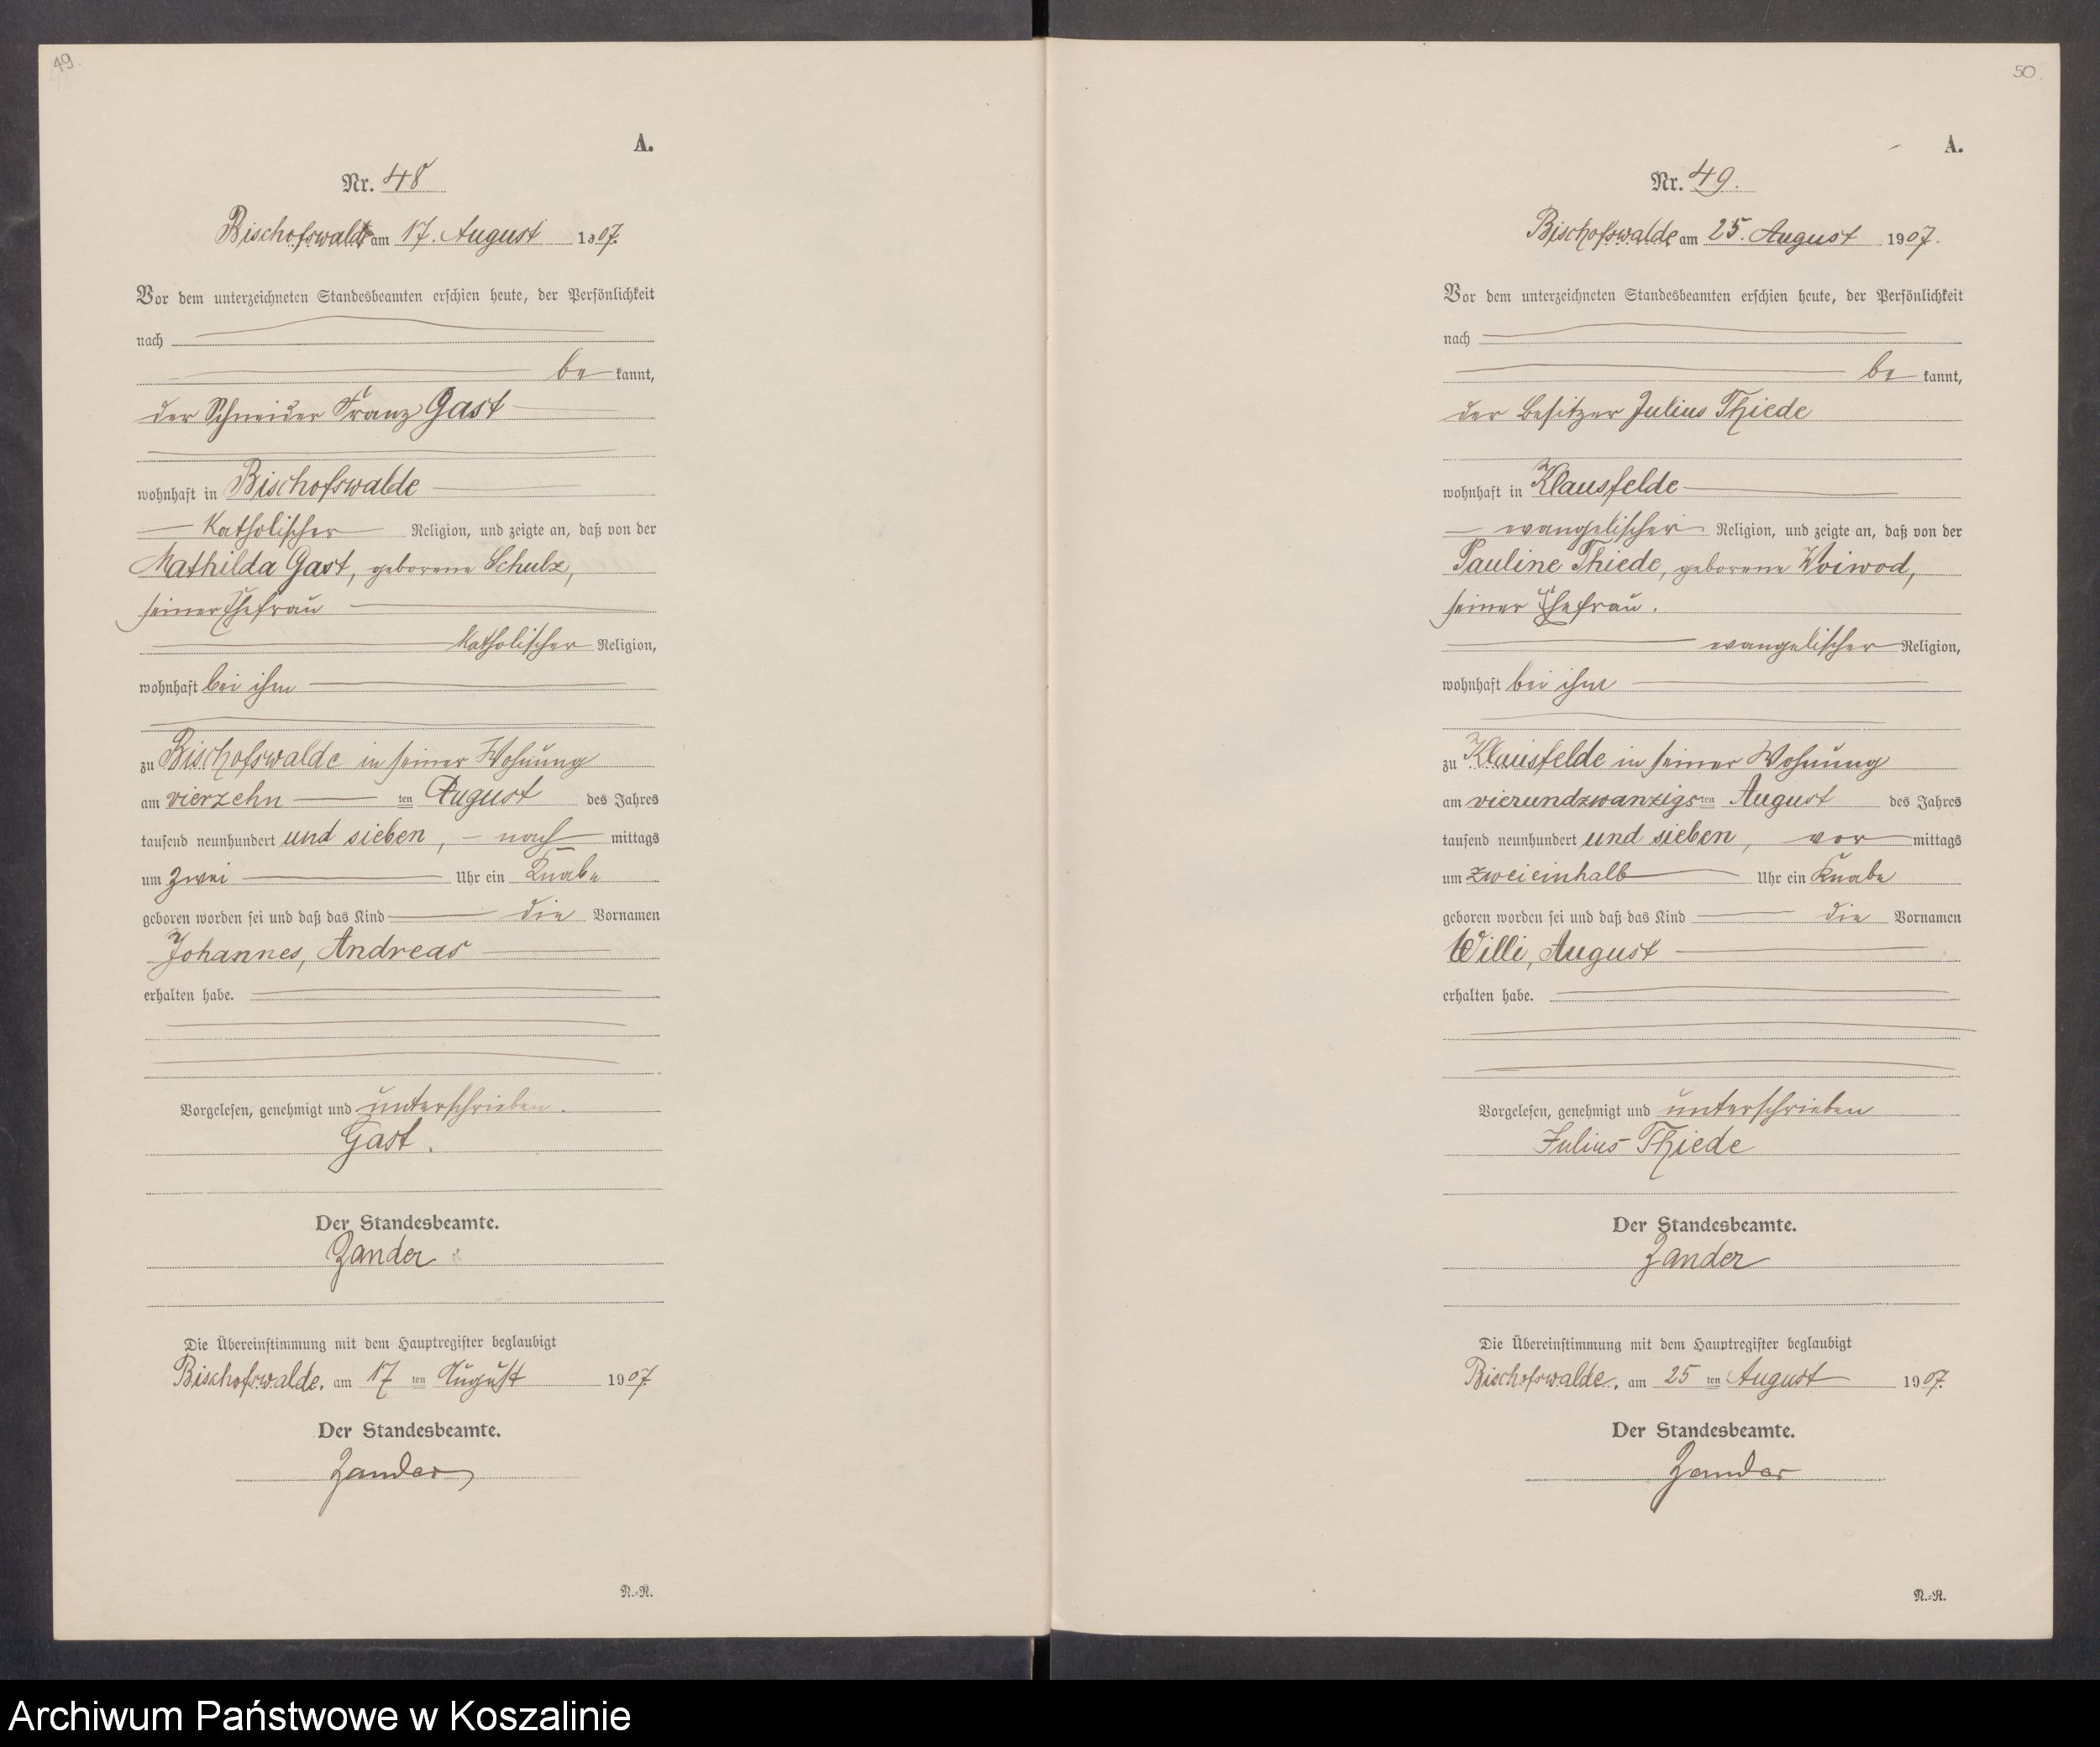 49.
A.
Nr. 48
Bischofswalde am 17. August 1907.
Vor dem unterzeichneten Standesbeamten erschien heute, der Persönlichkeit
nach
be kannt,
der Schneider Franz Gast
wohnhaft in Bischofswalde
katholischer Religion, und zeigte an, daß von der
Mathilda Gast, geborene Schulz,
seiner Ehefrau
katholischer Religion,
wohnhaft bei ihm
zu Bischofswalde in seiner Wohnung
am vierzehn ten August des Jahres
tausend neunhundert und sieben, nach mittags
um zwei Uhr ein Knabe
geboren worden sei und daß das Kind die Vornamen
Johannes, Andreas
erhalten habe.
Vorgelesen, genehmigt und unterschrieben.
Gast.
Der Standesbeamte.
Zander
Die Übereinstimmung mit dem Hauptregister beglaubigt
Bischofswalde, am 17 ten August 1907.
Der Standesbeamte.
Zander
N.=R.
50.
A.
Nr. 49.
Bischofswalde am 25. August 1907.
Vor dem unterzeichneten Standesbeamten erschien heute, der Persönlichkeit
nach
be kannt,
der Besitzer Julius Thiede
wohnhaft in Klausfelde
evangelischer Religion, und zeigte an, daß von der
Pauline Thiede, geborene Woiwod,
seiner Ehefrau.
evangelischer Religion,
wohnhaft bei ihm
zu Klausfelde in seiner Wohnung
am vierundzwanzigsten August des Jahres
tausend neunhundert und sieben, vor mittags
um zweieinhalb Uhr ein Knabe
geboren worden sei und daß das Kind die Vornamen
Willi, August
erhalten habe.
Vorgelesen, genehmigt und unterschrieben
Julius Thiede
Der Standesbeamte.
Zander
Die Übereinstimmung mit dem Hauptregister beglaubigt
Bischofswalde, am 25 ten August 1907.
Der Standesbeamte.
Zander
N.=R.
Archiwum Państwowe w Koszalinie